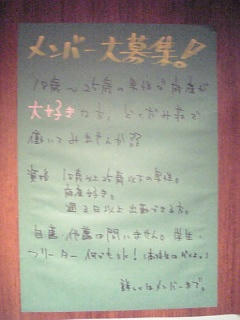 メンバー大募集!
18歳〜25歳の男性で麻雀が
大好きな方、
働いてみませんか??
資格 18歳以上25歳以下の男性。
麻雀好き。
週3日以上出勤できる方。
自薦・他薦は問いません。学生・
フリーター 何でもOK!
詳しくはメンバーまで。